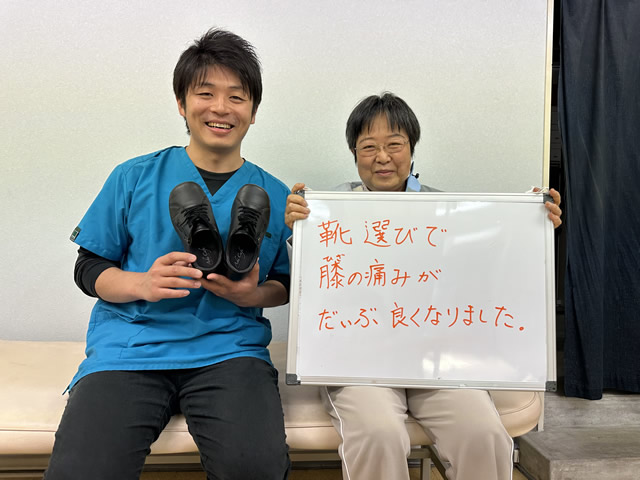 靴選びで
膝の痛みが
だいぶ良くなりました。